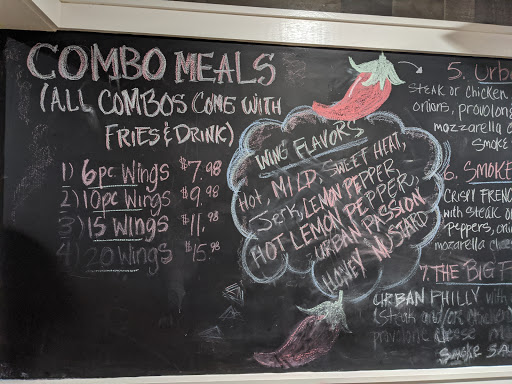 COMBO MEALS
(ALL COMBOS COME WITH
FRIES & DRINK)
1) 6pc Wings $7.98
2) 10pc Wings $9.98
3) 15 Wings $11.98
4) 20 Wings $15.98
WING FLAVORS
Hot, MILD, SWEET HEAT,
Jerk, LEMON PEPPER
HOT LEMON PEPPER,
URBAN PASSION
HONEY MUSTARD
5. Urb
STEAK OR CHICKEN
onions, provolon
mozzarella
SMOKE
6. SMOKE
CRISPY FRENC
with STEAK or
peppers, oni
mozarella chees
7. THE BIG
URBAN PHILLY with
(Steak and/or chicken
provolone cheese
SMOKE SA